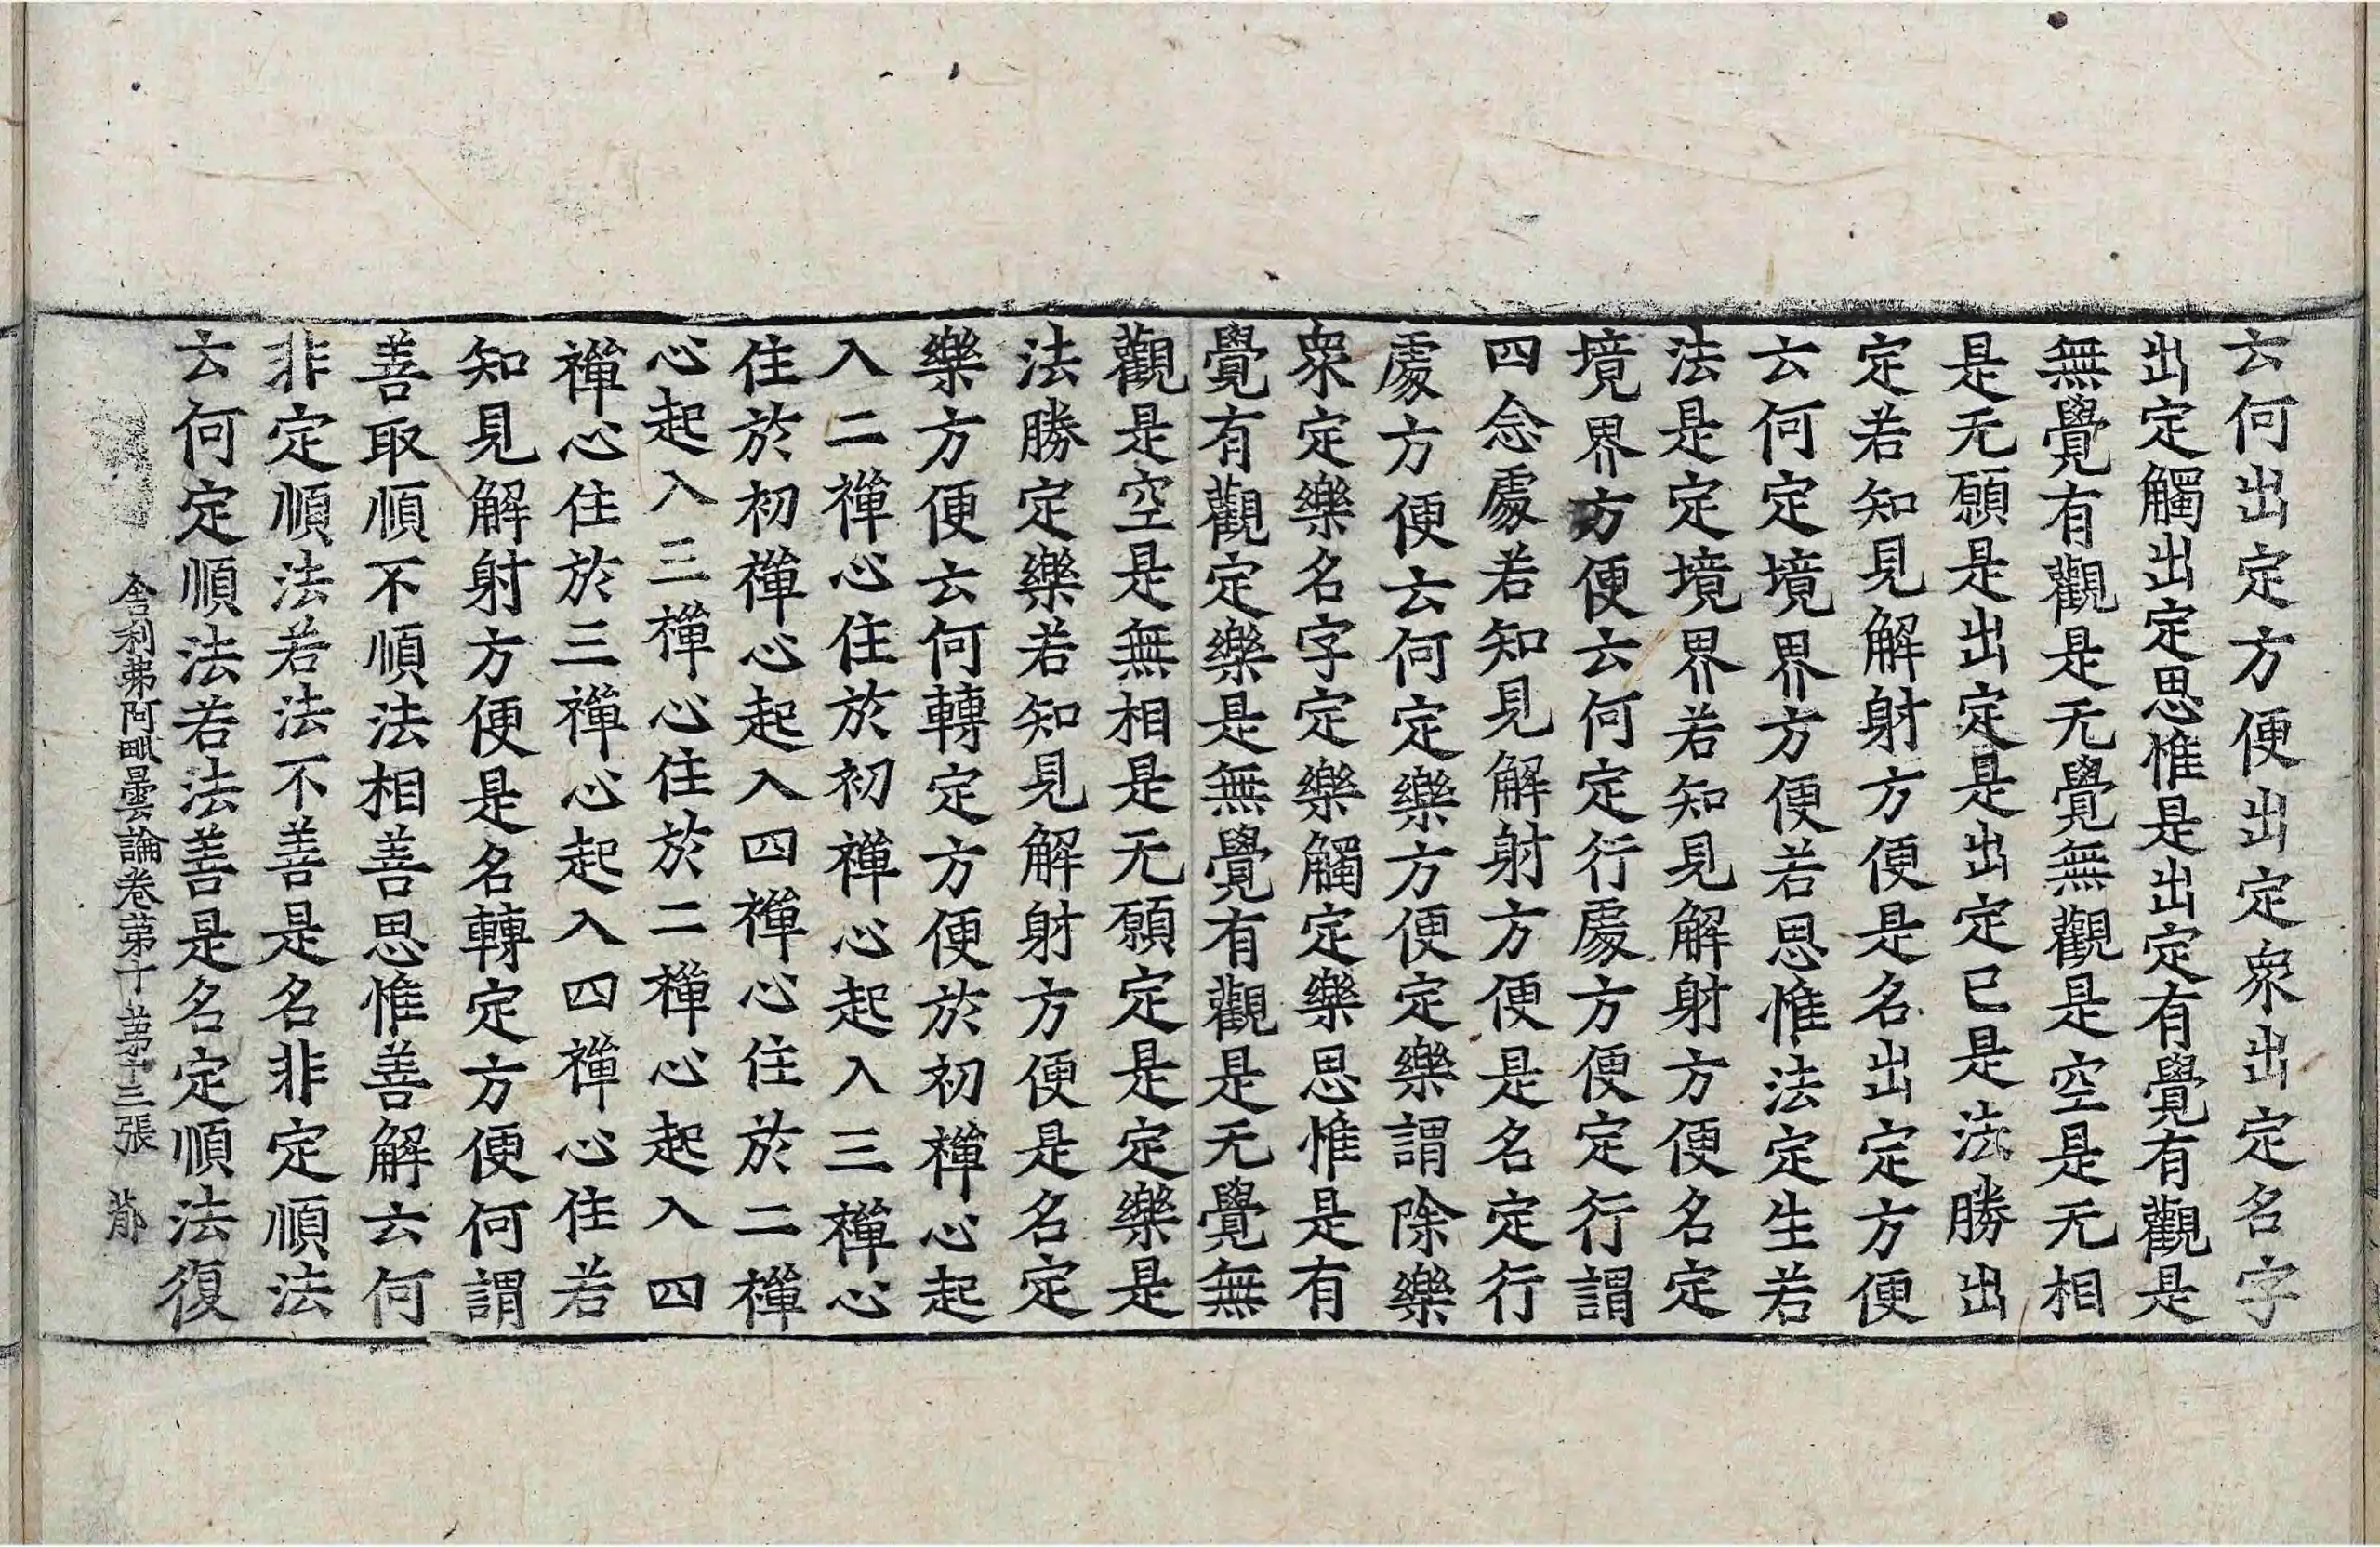 云何出定方便出定衆出定名字
出定觸出定思惟是出定有覺有觀是
無覺有觀是无覺無觀是空是无相
是无願是出定是出定已是法勝出
定若知見解射方便是名出定方便
云何定境界方便若思惟法定生若
法是定境界若知見解射方便名定
境界方便云何定行處方便定行謂
四念處若知見解射方便是名定行
處方便云何定樂方便定樂謂除樂
衆定樂名字定樂觸定樂思惟是有
覺有觀定樂是無覺有觀是无覺無
觀是空是無相是无願定是定樂是
法勝定樂若知見解射方便是名定
樂方便云何轉定方便於初禪心起
入二禪心住於初禪心起入三禪心
住於初禪心起入四禪心住於二禪
心起入三禪心住於二禪心起入四
禪心住於三禪心起入四禪心住若
知見解射方便是名轉定方便何謂
善取順不順法相善思惟善解云何
非定順法若法不善是名非定順法
云何定順法若法善是名定順法復
舍利弗阿毗曇論卷苐十 苐十三張